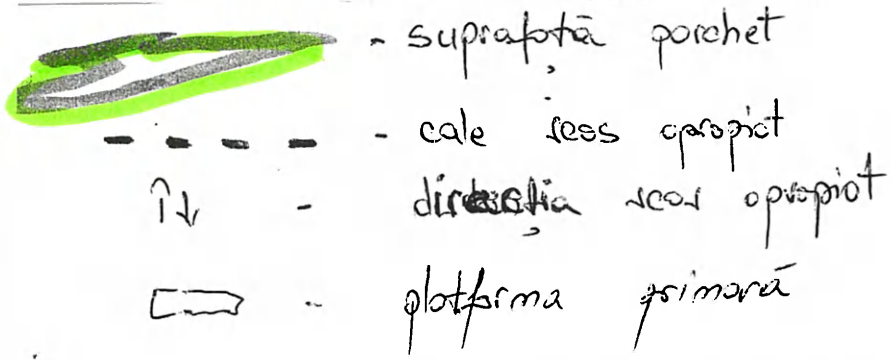 - suprafață parchet
- cale scos apropiat
- direcția scos apropiat
- platforma primară